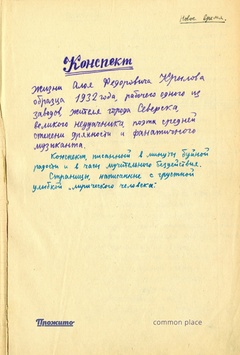 Новое время.
Конспект
Жизни Алья Федоровича Крылова
образца 1932 года, рабочего одного из
заводов, жителя города Северска,
великого неудачника, поэта средней
степени дрянности и фанатичного
музыканта.
Конспект, писанный в минуты буйной
радости и в часы мучительного бездействия.
Страницы, написанные с грустной
улыбкой „лирического человека“.
Прожито
common place